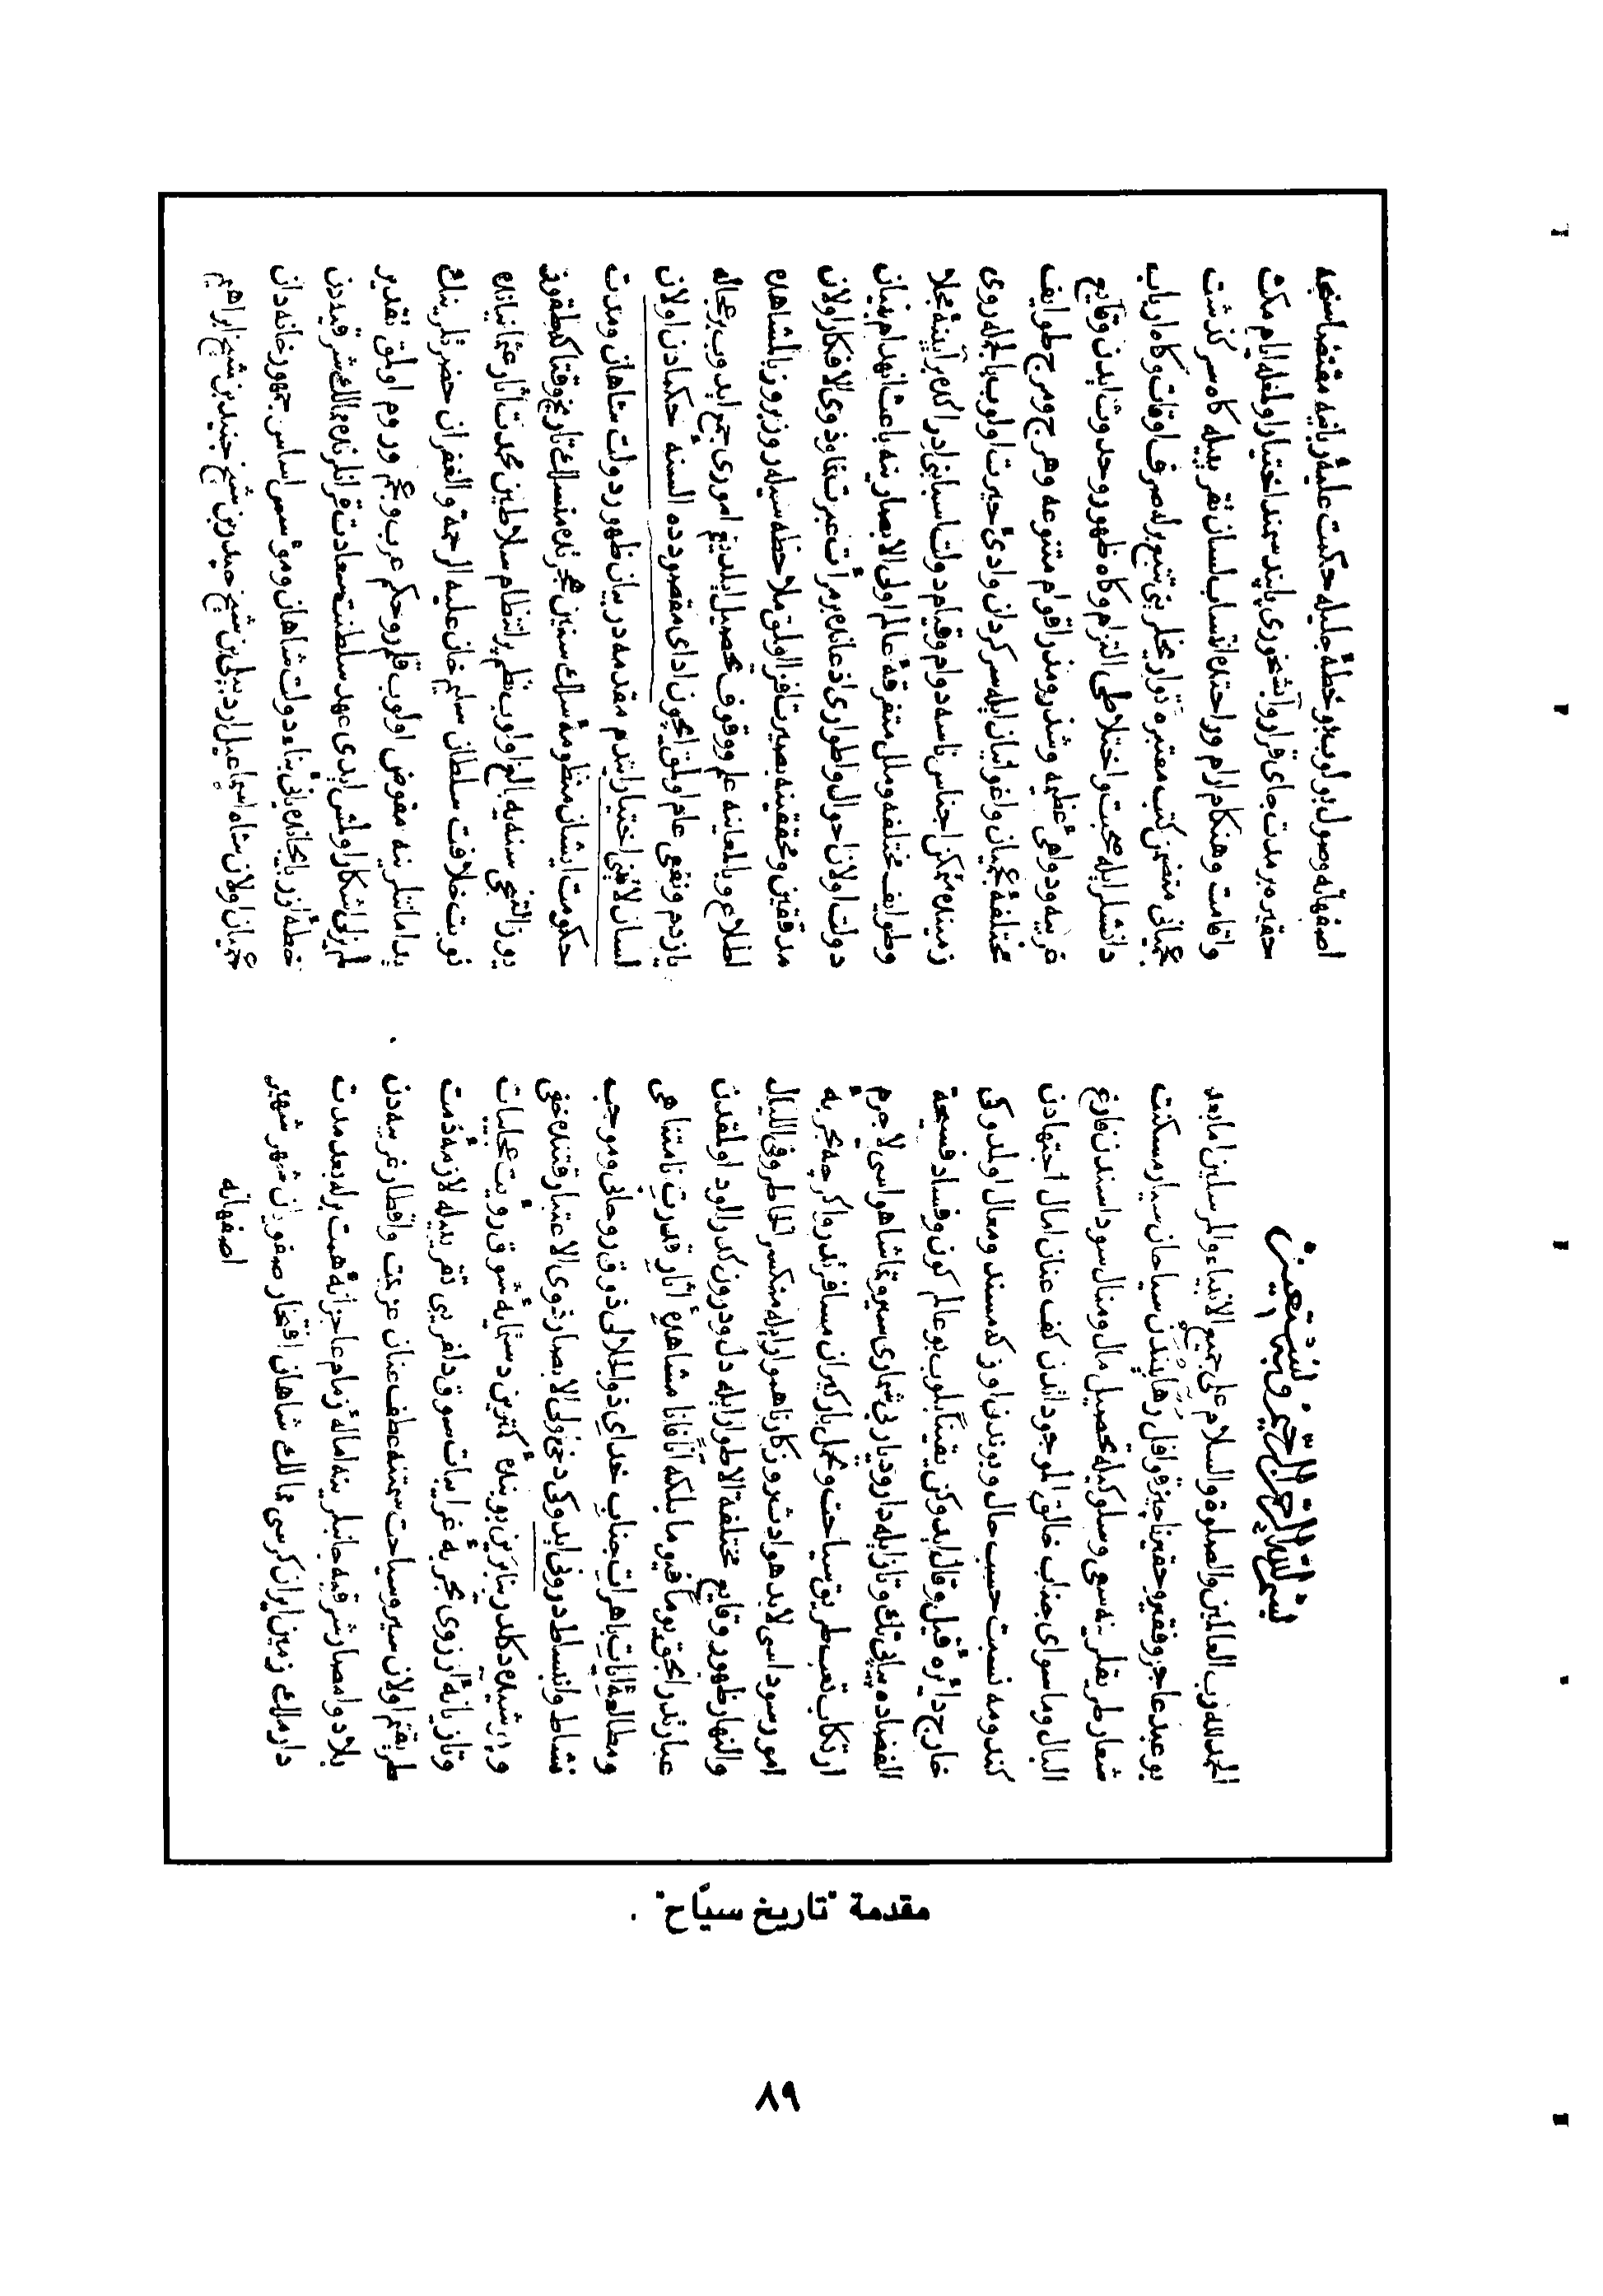 بسم الله الرحمن الرحيم وبه نستعين
الحمد لله رب العالمين والصلوة والسلام على جميع الانبياء والمرسلين اما بعد
بو عبد عاجز وفقير وحقير ناچيز قوافل رهابيندن سياحان سيار مسكنت
شعار طريقلرينه سعى وسلوكيله تحصيل مال ومنال سوداسندن فارغ
البال وماسواى جناب خالق الموجوداتدن كف عنان امال اجتهادن
كندومه نسبت حسب حال وبوندن اوزكه مسند ومعال اولمدوكى
خارج دائره قيل وقال ايدوكن يقينا بلوب بو عالم كون وفساد فسيحة
الفضاده تك وتاز ايله دار وديار بى شمارى سير وتماشا هواسى لاجرم
ارتكاب تعب طريق سياحت وتحمل باركيران مسافرتدر واكرچه تجربه
امور سوداسى لابد حوادث روزكار ناهموار ايله منكسر الخاطر وفى الليال
والنهار ظهور وقايع مختلفة الاطوار ايله دل ودرون كدر الود اولمقدن
عبارتدر انجق يوما فيوما بلكه آنا فآنا مشاهدهٔ آثار قدرت نامتناهى
ومطالعهٔ ايات باهرات جناب خداى ذوالجلال ذوق روحانى وموجب
نشاط وانبساط درونى ايدوكى دخى اولى الابصار ذوى الاعتبار قتنده خفى
و پوشيده دكلدر بنابرين بو بندهٔ كمترين دستمايهٔ شوق رؤيت عجايبات
وتازيانهٔ آرزوى تجربهٔ غرايبات سوق دلفريبى تقريبيله لازمهٔ ذمت
طريقتم اولان سير وسياحت سمتنه عطف عنان عزيمت واقطار غربيه دن
بلاد وامصار شرقيه جانبلرينه امالهٔ زمام عاجزانهٔ همت برله بعد مدت
دار ملك زمين ايران كرسى ممالك شاهان افتخار صفويان شهر شهير
اصفهانه
اصفهانه وصول بولوب بو خطهٔ جليله حكمت عليهٔ ربانيه مقتضاسنجه
حقيره بر مدت جاى قرار وآبشخورى پايبند سمند اختيار اولمغله ايام مكث
واقامت وهنكام ارام وراحتده انتساب لسان تقريبيله كاه سركذشت
عجميانى متضمن كتب معتبره تواريخلرينى تتبع برله صرف اوقات وكاه ارباب
دانشلر ايله صحبت واختلاطى التزام وكاه ظهور وحدوث ايدن وقايع
غريبه ودواهى عظيمه وشذر ومذر اقوام متنوعه وهرج ومرج طوايف
مختلفهٔ عجميان واغوانيان ايله سركردان وادئ حيرت اولوب بالجمله روى
زمينده متمكن اجناس ناسه دوام وقيام دولت اسبابنى ادراكده بر آيينهٔ مجلا
وطوايف مختلفه وملل متفرقهٔ عالم اولى الابصارينه باعث انهدام بنيان
دولت اولان احوال واطوارى اذعانده بر مرآت عبرتنما وذوى الافكار اولان
مدققين ومحققينه بصيرت افزا اولمق ملاحظه سيله روز بروز بالمشاهده
اطلاع وبالمعاينه علم ووقوف تحصيل ايلديكم امورى جمع ايدوب بر عجاله
يازدم ونفعى عام اولمق ايچون اداى مقصودده السنهٔ حكمادن اولان
لسان لاتينى اختيار ايتدم مقدمه در بيان ظهور دولت شاهان ومدت
حكومت ايشان منظومهٔ سلك سنين هجرتده منسلك تاريخ وقتاكه طقوز
يوز التمش سنه يه بالغ اولوب نظم پر انتظام سلاطين محمدت آثار عثمانيانده
نوبت خلافت سلطان سليم خان عليه الرحمة والغفران حضرتلرينك
يد امانتلرينه مفوض اولوب قلمرو حكم عرب وعجم وروم اولمق تقدير
لم يزلى اشكار اولمش ايدى عهد سلطنت سعادت قرانلرنده ممالك شرقيه دن
خطهٔ آزربايجانده بانئ بناء دولت شاهان ومؤسس اساس جمهور خاندان
عجميان اولان شاه اسماعيل اردبيلى بن شيخ حيدر بن شيخ جنيد بن شيخ ابراهيم
مقدمة "تاريخ سيّاح" .
٨٩